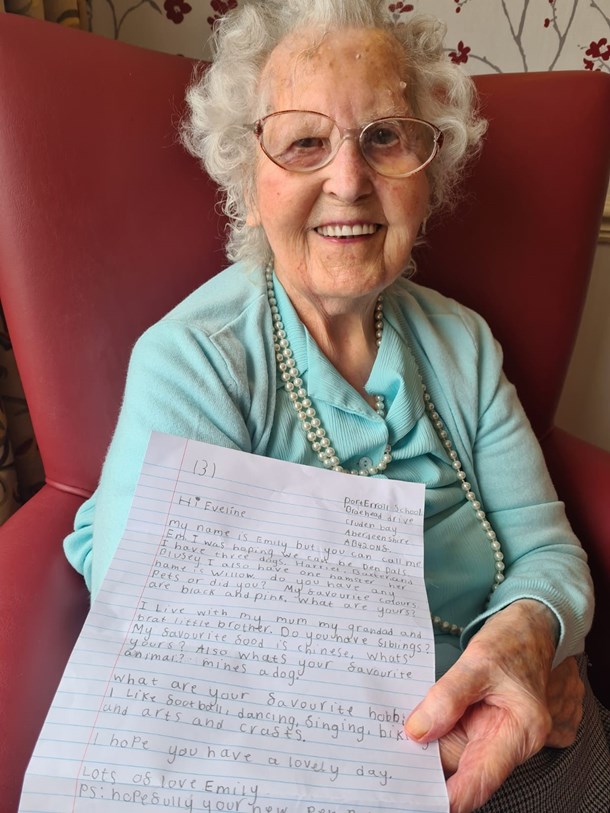 (3)
Port Erroll School
Braehead drive
Cruden bay
Aberdeenshire
Hi Eveline
My name is Emily but you can call me
Em. I was hoping we can be pen pals.
I have three dogs. Harriet, and
I also have one hamster her
name is Willow. do you have any
Pets or did you? My savourite colours
are black and pink. What are yours?
I Live with my mum my grandad and
brat little brother. Do you have siblings?
My savourite Sood is chinese, whats
yours? Also whats your savourite
animal? mines a dog.
what are your savourite hobbi
I Like Sootball, dancing, Singing, bik
and arts and crasts.
I hope you have a lovely day.
Lots os love Emily
PS: hopesully your new Pen